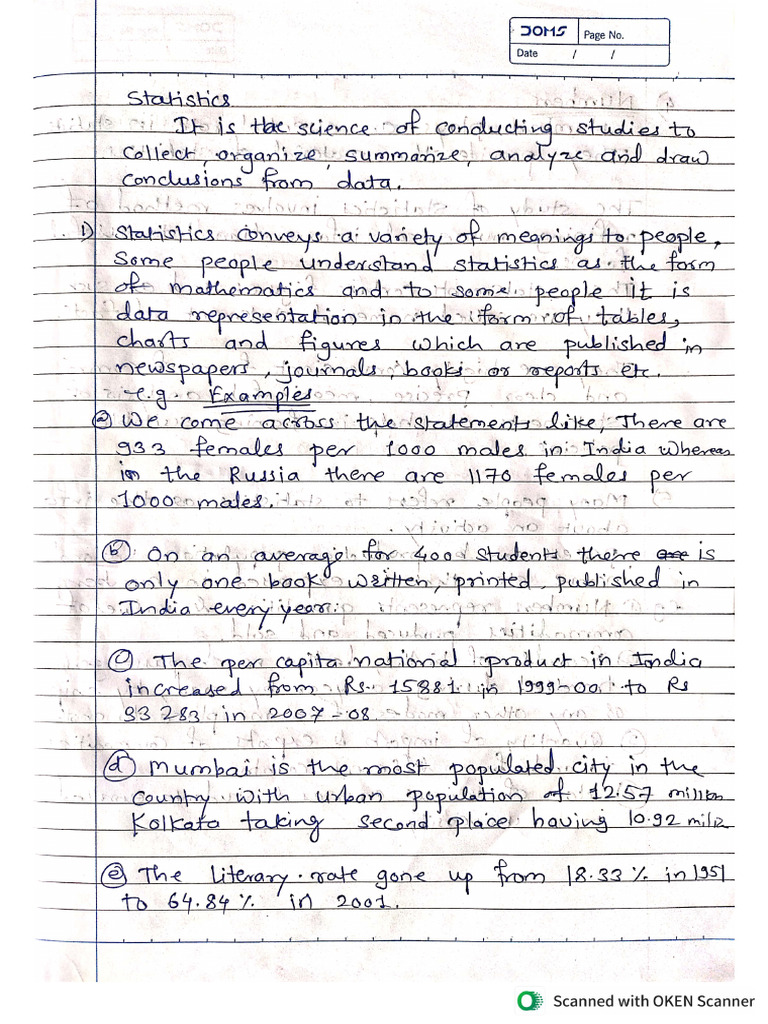 DOMS
Page No.
Date / /
Statistics
It is the science of conducting studies to
collect, organize, summarize, analyze and draw
conclusions from data.
1) Statistics conveys a variety of meanings to people,
Some people understand statistics as the form
of mathematics and to some people it is
data representation in the form of tables,
charts and figures which are published in
newspapers, journals, books or reports etc.
e.g. Examples
(a) We come across the statements like, There are
933 females per 1000 males in India whereas
in the Russia there are 1170 females per
1000 males.
(b) On an average for 4000 students there are is
only one book written, printed, published in
India every year.
(c) The per capita national product in India
increased from Rs. 15881 in 1999-00 to Rs
33283 in 2007-08.
(d) Mumbai is the most populated city in the
country with urban population of 12.57 million
Kolkata taking second place having 10.92 milio
(e) The literary rate gone up from 18.33% in 1951
to 64.84% in 2001.
Scanned with OKEN Scanner